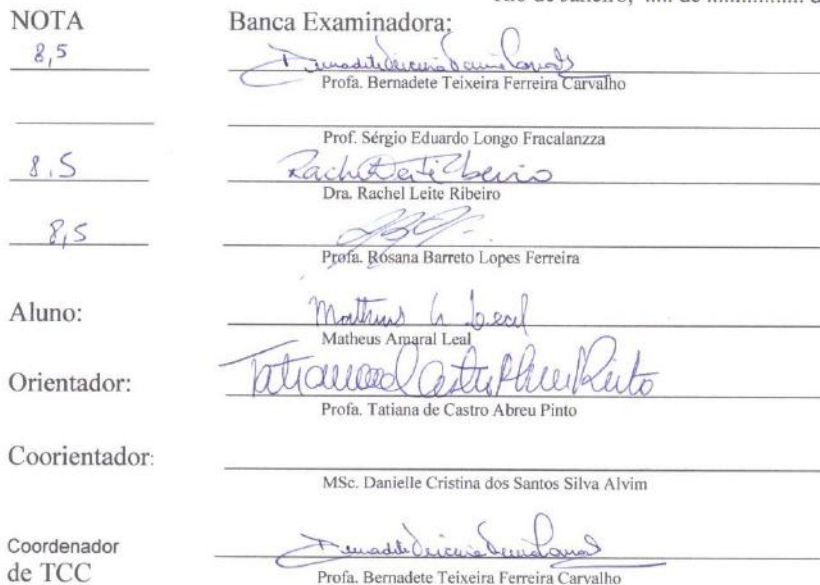 NOTA Banca Examinadora:
8,5
Profa. Bernadete Teixeira Ferreira Carvalho
Prof. Sérgio Eduardo Longo Fracalanzza
8.5 Rachel Leite Ribeiro
Dra. Rachel Leite Ribeiro
8,5
Profa. Rosana Barreto Lopes Ferreira
Aluno: Matheus A Leal
Matheus Amaral Leal
Orientador: Tatiana de Castro Abreu Pinto
Profa. Tatiana de Castro Abreu Pinto
Coorientador:
MSc. Danielle Cristina dos Santos Silva Alvim
Coordenador
de TCC
Profa. Bernadete Teixeira Ferreira Carvalho